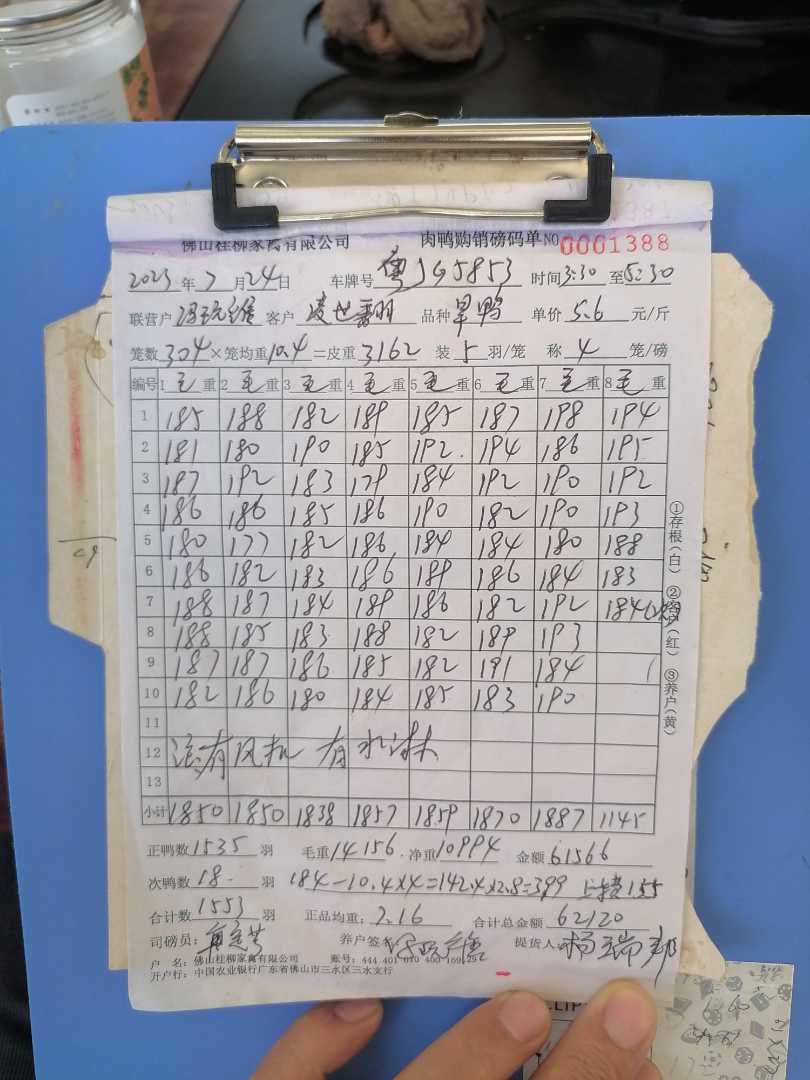 佛山桂柳家禽有限公司 肉鸭购销磅码单 NO 0001388
2023 年 7 月 24 日 车牌号 粤JG5853 时间 3:30 至 5:30
联营户 冯 维 客户 凌世 品种 旱鸭 单价 5.6 元/斤
笼数 304 × 笼均重 10.4 = 皮重 3162 装 5 羽/笼 称 4 笼/磅
编号 1 毛 重 2 毛 重 3 毛 重 4 毛 重 5 毛 重 6 毛 重 7 毛 重 8 毛 重
1 185 188 182 189 185 187 198 194
2 181 180 190 185 192 194 186 195
3 187 192 183 179 184 192 190 192
4 186 186 185 186 190 182 190 193
5 180 177 182 186 184 184 180 188
6 186 182 183 186 189 186 184 183
7 188 187 184 189 186 182 192 184
8 188 185 183 188 182 189 193
9 187 187 186 185 182 191 184
10 182 186 180 184 185 183 190
11
12 没有风机 有水淋
13
小计 1850 1850 1838 1857 1859 1870 1887 1145
正鸭数 1535 羽 毛重 14156 净重 10994 金额 61566
次鸭数 18 羽 184-10.4×4=142.4×2.8=399 155
合计数 1553 羽 正品均重: 7.16 合计总金额 62120
司磅员: 养户签名 维 提货人: 杨瑞
户 名: 佛山桂柳家禽有限公司 账号: 444 401 010 400
开户行: 中国农业银行广东省佛山市三水区三水支行
①存根(白) ②客户(红) ③养户(黄)